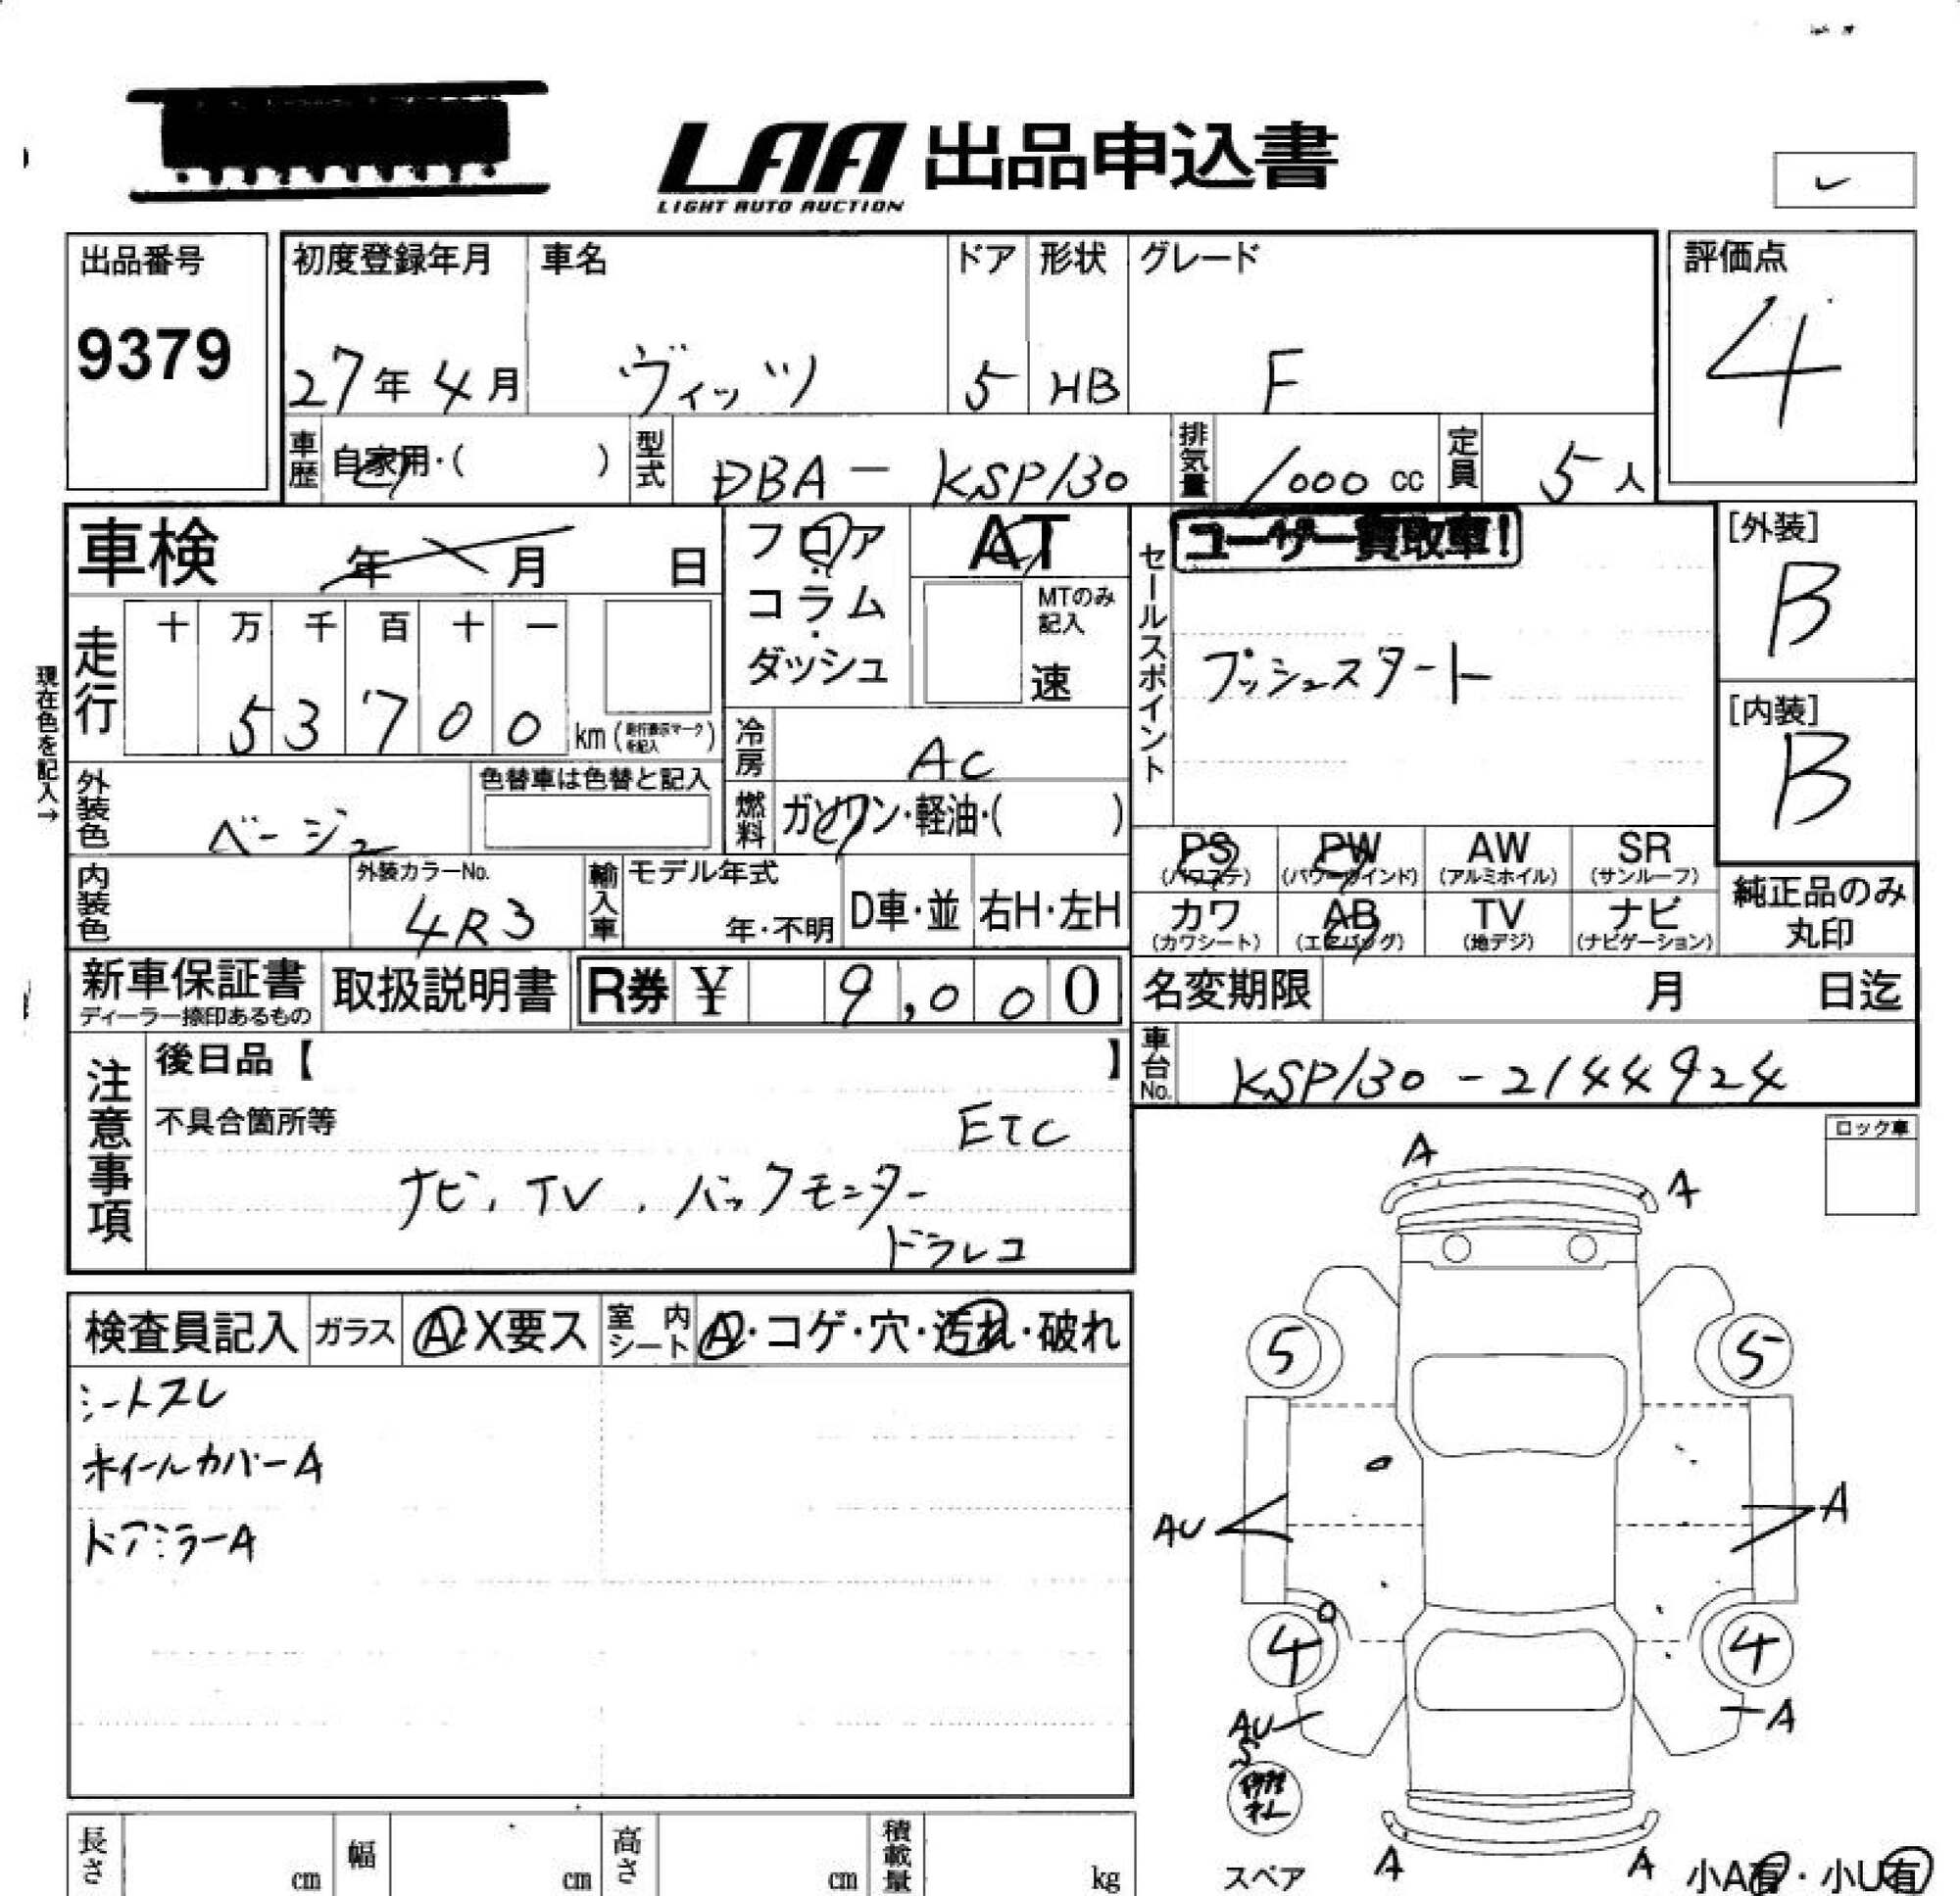 LAA 出品申込書
LIGHT AUTO AUCTION
出品番号
9379
初度登録年月
27年4月
車名
ヴィッツ
ドア
5
形状
HB
グレード
F
評価点
4
車歴 自家用・( )
型式 DBA-KSP130
排気量 1000 cc
定員 5人
車検 年 月 日
フロア・コラム・ダッシュ
AT
MTのみ記入
速
セールスポイント
ユーザー買取車!
プッシュスタート
[外装]
B
[内装]
B
現在色を記入→
走行
十 万 千 百 十 一
5 3 7 0 0 km (走行表示マークを記入)
冷房 AC
外装色 ベージュ
色替車は色替と記入
燃料 ガソリン・軽油・( )
内装色
外装カラーNo.
4R3
輸入車
モデル年式
年・不明
D車・並
右H・左H
PS (パワステ)
PW (パワーウインド)
AW (アルミホイル)
SR (サンルーフ)
カワ (カワシート)
AB (エアバッグ)
TV (地デジ)
ナビ (ナビゲーション)
純正品のみ丸印
新車保証書
ディーラー捺印あるもの
取扱説明書
R券 ¥ 9,000
名変期限 月 日迄
車台No. KSP130-2144924
注意事項
後日品【 】
不具合箇所等
ETC
ナビ、TV、バックモニター
ドラレコ
ロック車
検査員記入
ガラス A・X要ス
室内シート A・コゲ・穴・汚れ・破れ
シートスレ
ホイールカバーA
ドアミラーA
A
A
5
5
AU
A
4
4
AU
S
A
修理キット
スペア
A
A
小A有・小U有
長さ cm
幅 cm
高さ cm
積載量 kg